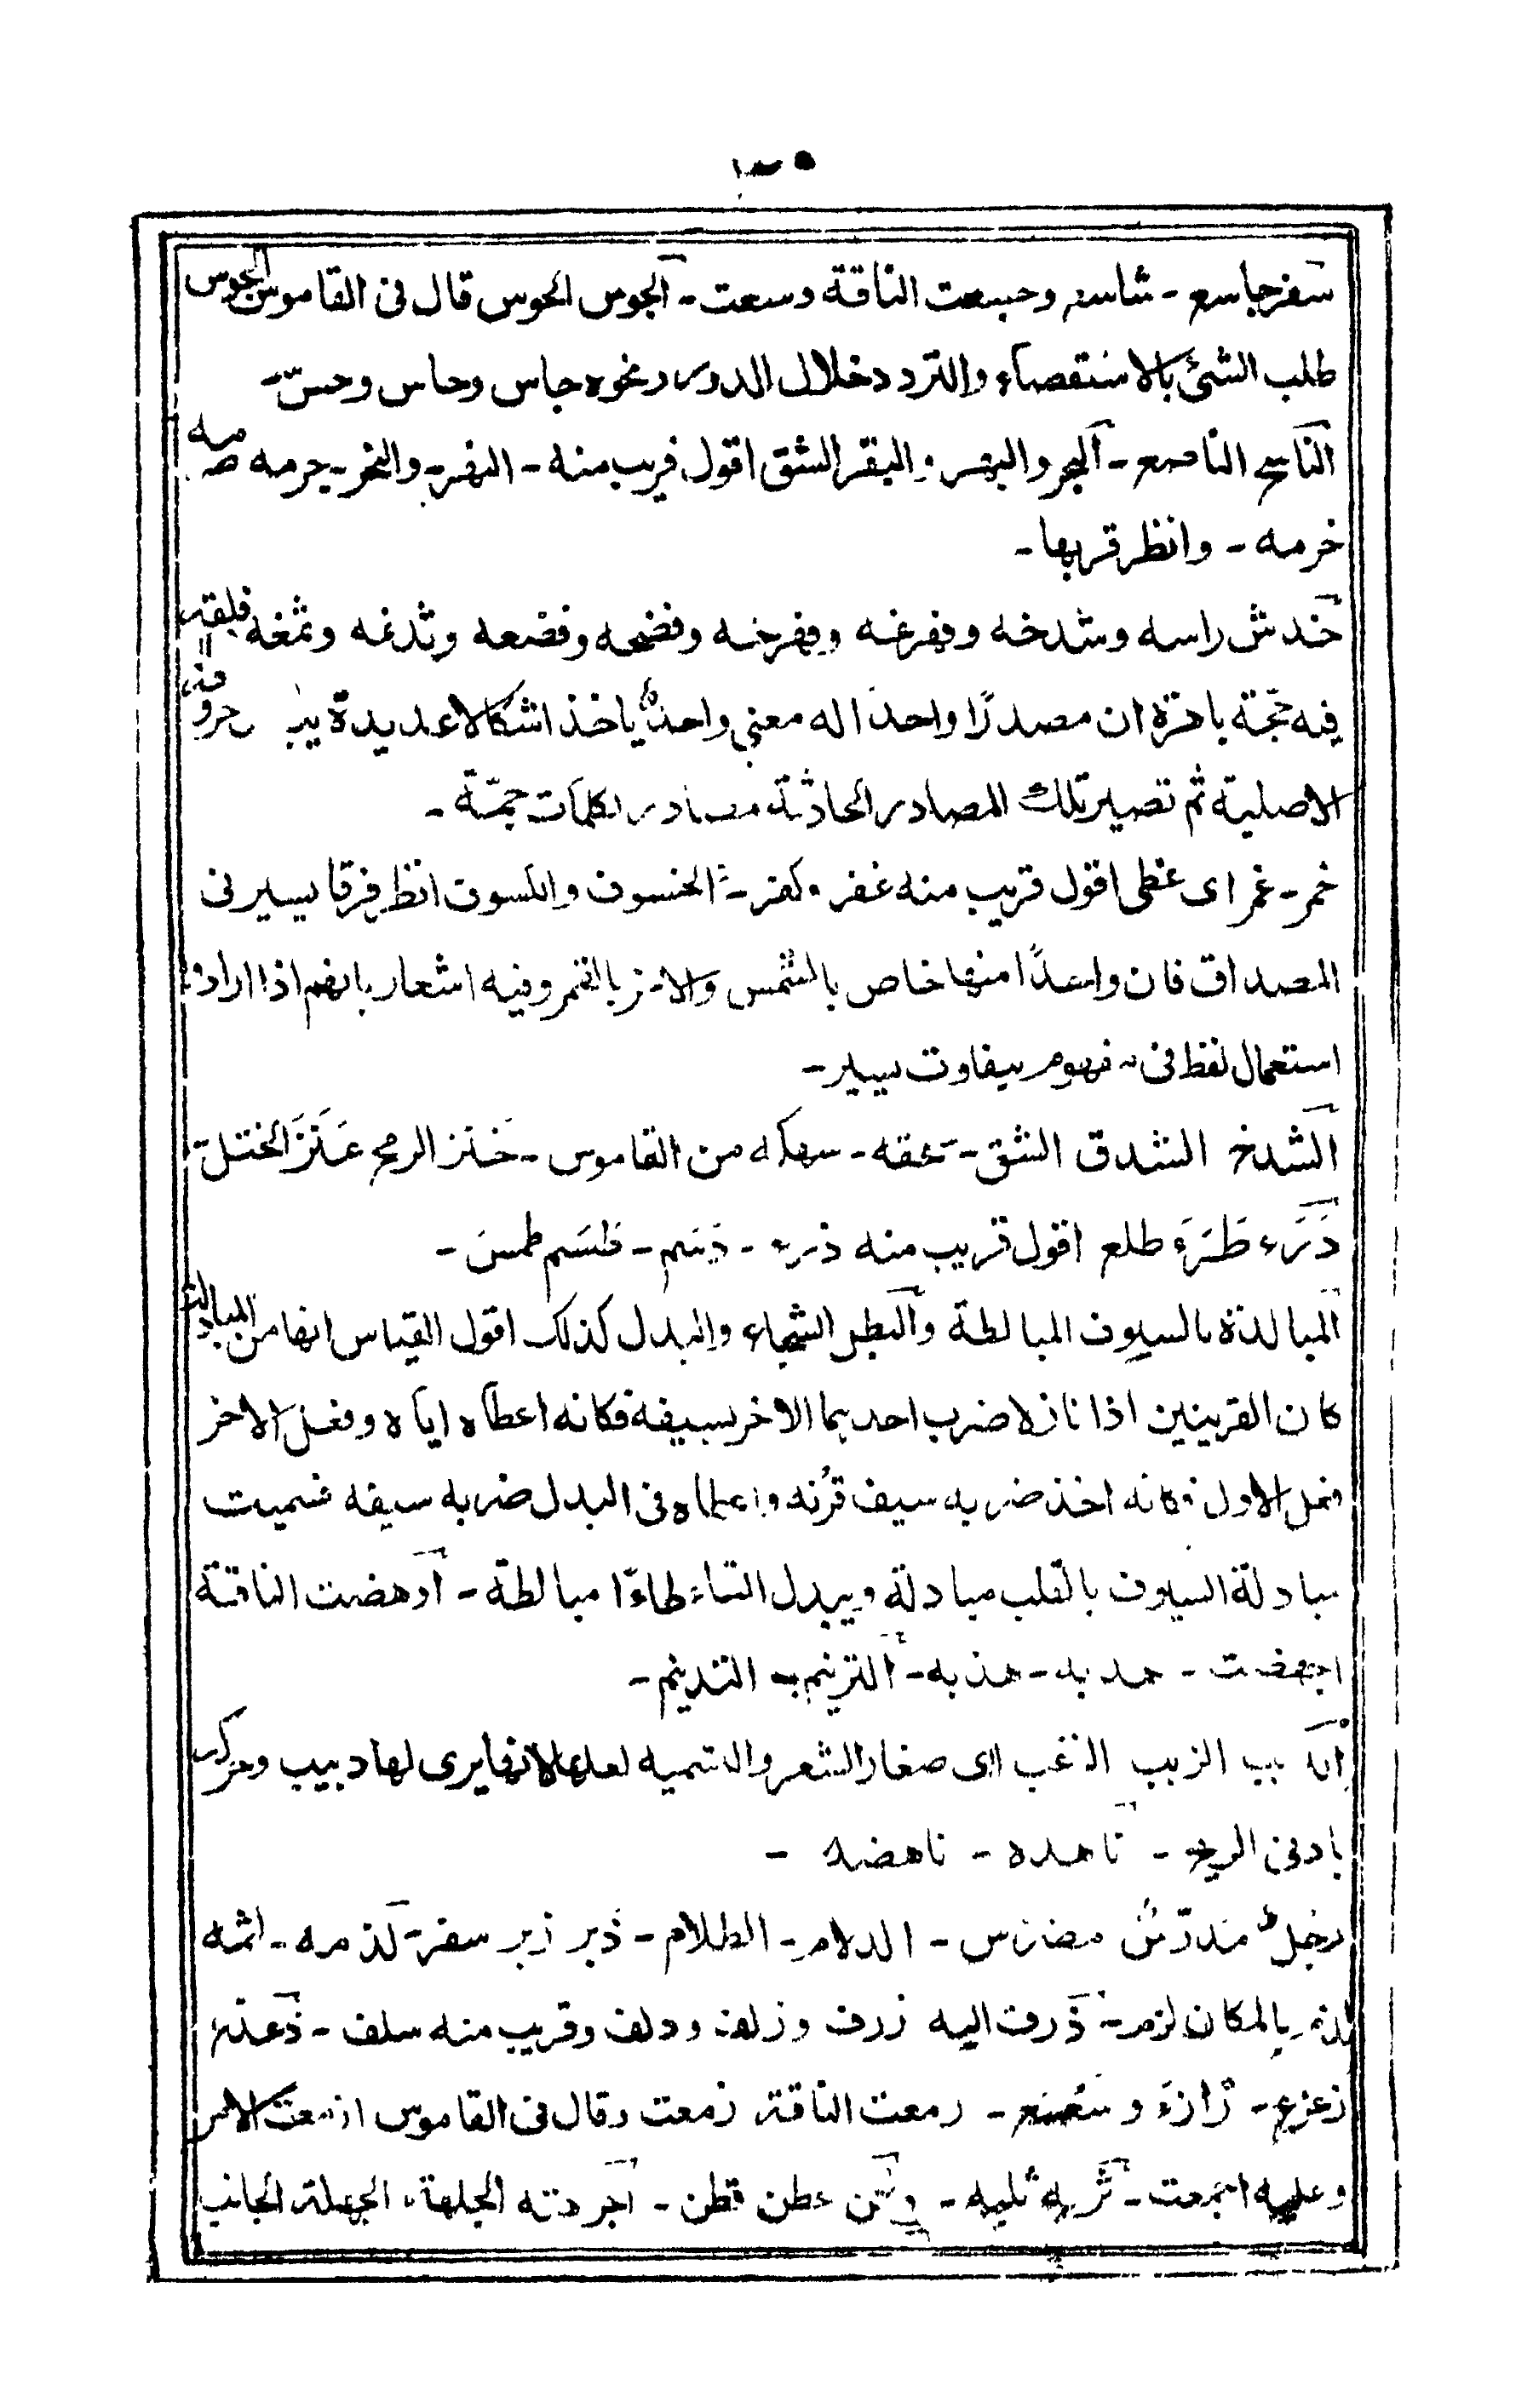 سفر جاسع - شاسع وجسعت الناقة وسعت - الجوس الحوس قال فى القاموس الجوس
طلب الشئ بالاستقصاء والتردد خلال الدور ونحوه جاس وحاس وحسّ -
الناسع الناصع - البجر والبهر والبقر الشق اقول قريب منه - النهر - والنخر - جرمه صرمه
خرمه - وانظر قربها -
خدش راسه وشدخه وفرغه وفرخه وفضحه وفضعه وثدغه وثمغه فلقه
فيه حجّة باهرة ان مصدرًا واحدًا له معنى واحدٌ ياخذ اشكالا عديدة حروفه
الاصلية ثم تصير تلك المصادر الحادثة مصادر لكلمات جمّة -
خمر - غمر اى غطى اقول قريب منه غفر وكفر - الخسوف والكسوف انظر فرقا يسير فى
المصداق فان واحدًا منها خاص بالشمس والاخر بالقمر وفيه اشعار بانهم اذا ارادوا
استعمال لفظ فى مفهوم بتفاوت يسير -
الشدخ الشدق الشق - سحقه - سهكه من القاموس - خنز الرمح عَنَزَ الختل
دَرَء طَرَء طلع اقول قريب منه ذرء - دَسَم - طَسَم طمس -
المبالدة بالسيوف المبالطة والبطر الشجاء والبدل كذلك اقول القياس انها من المبادلة
كان القرينين اذا نازلا ضرب احدهما الاخر بسيفه فكانه اعطاه اياه وفعل الاخر
فعل الاول فكانه اخذ ضربه سيف قرنه واعطاه فى البدل ضربه سيفه فسميت
مبادلة السيوف بالقلب مبادلة ويبدل التاء طاءًا مبالطة - ادهضت الناقة
اجهضت - هدبه - هذبه - الترنيم - التدنيم -
الدبب الزبب الزغب اى صغار الشعر والتسميه لعلها لانها يرى لها دبيب وحركة
بادنى الريح - ناهده - ناهضه -
رجلٌ مدرّسٌ مضرس - الدلام - الظلام - ذبر زبر سفر - لذمه - لثمه
لذم بالمكان لزم - ذرف اليه زرف وزلف ودلف وقريب منه سلف - ذعذع
زعزع - زازء وسعسع - رمعت الناقة زمعت وقال فى القاموس ازمعت الامر
وعليه اجمعت - ثربه ثلبه - وتن عطن قطن - اجردته الجلهة، الجهلة الجانب